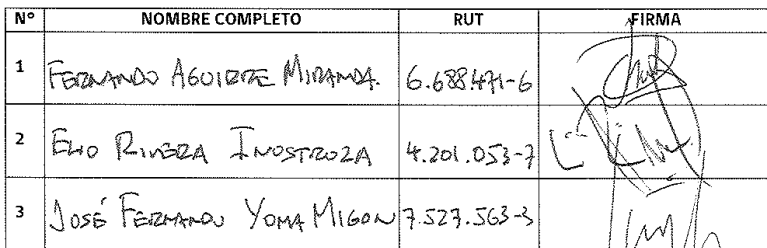 N° NOMBRE COMPLETO RUT FIRMA
1 FERNANDO AGUIRRE MIRANDA. 6.688.471-6
2 ELIO RIVERA INOSTROZA 4.201.053-7
3 JOSÉ FERNANDO YOMA MIGON 7.527.563-3